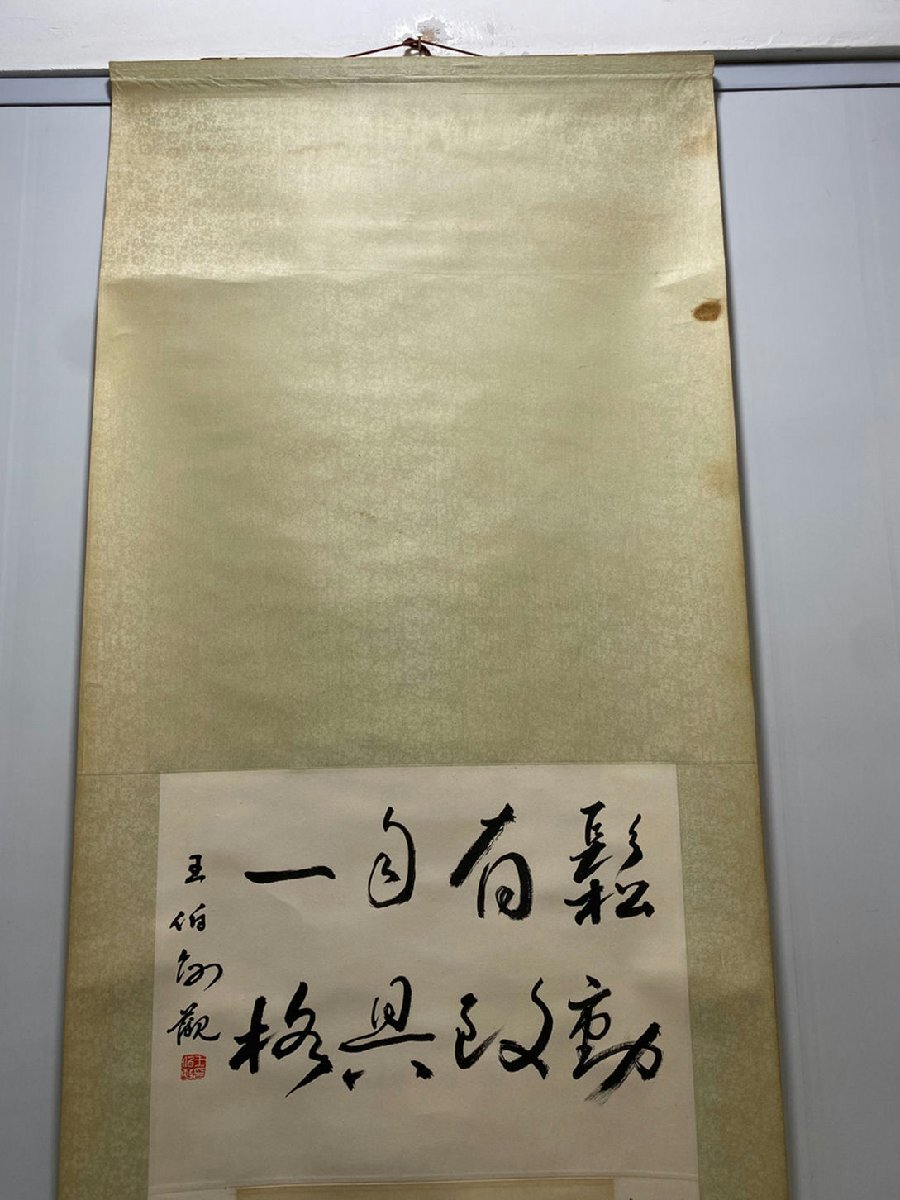 鬆動
有致
自具
一格
王伯敏觀